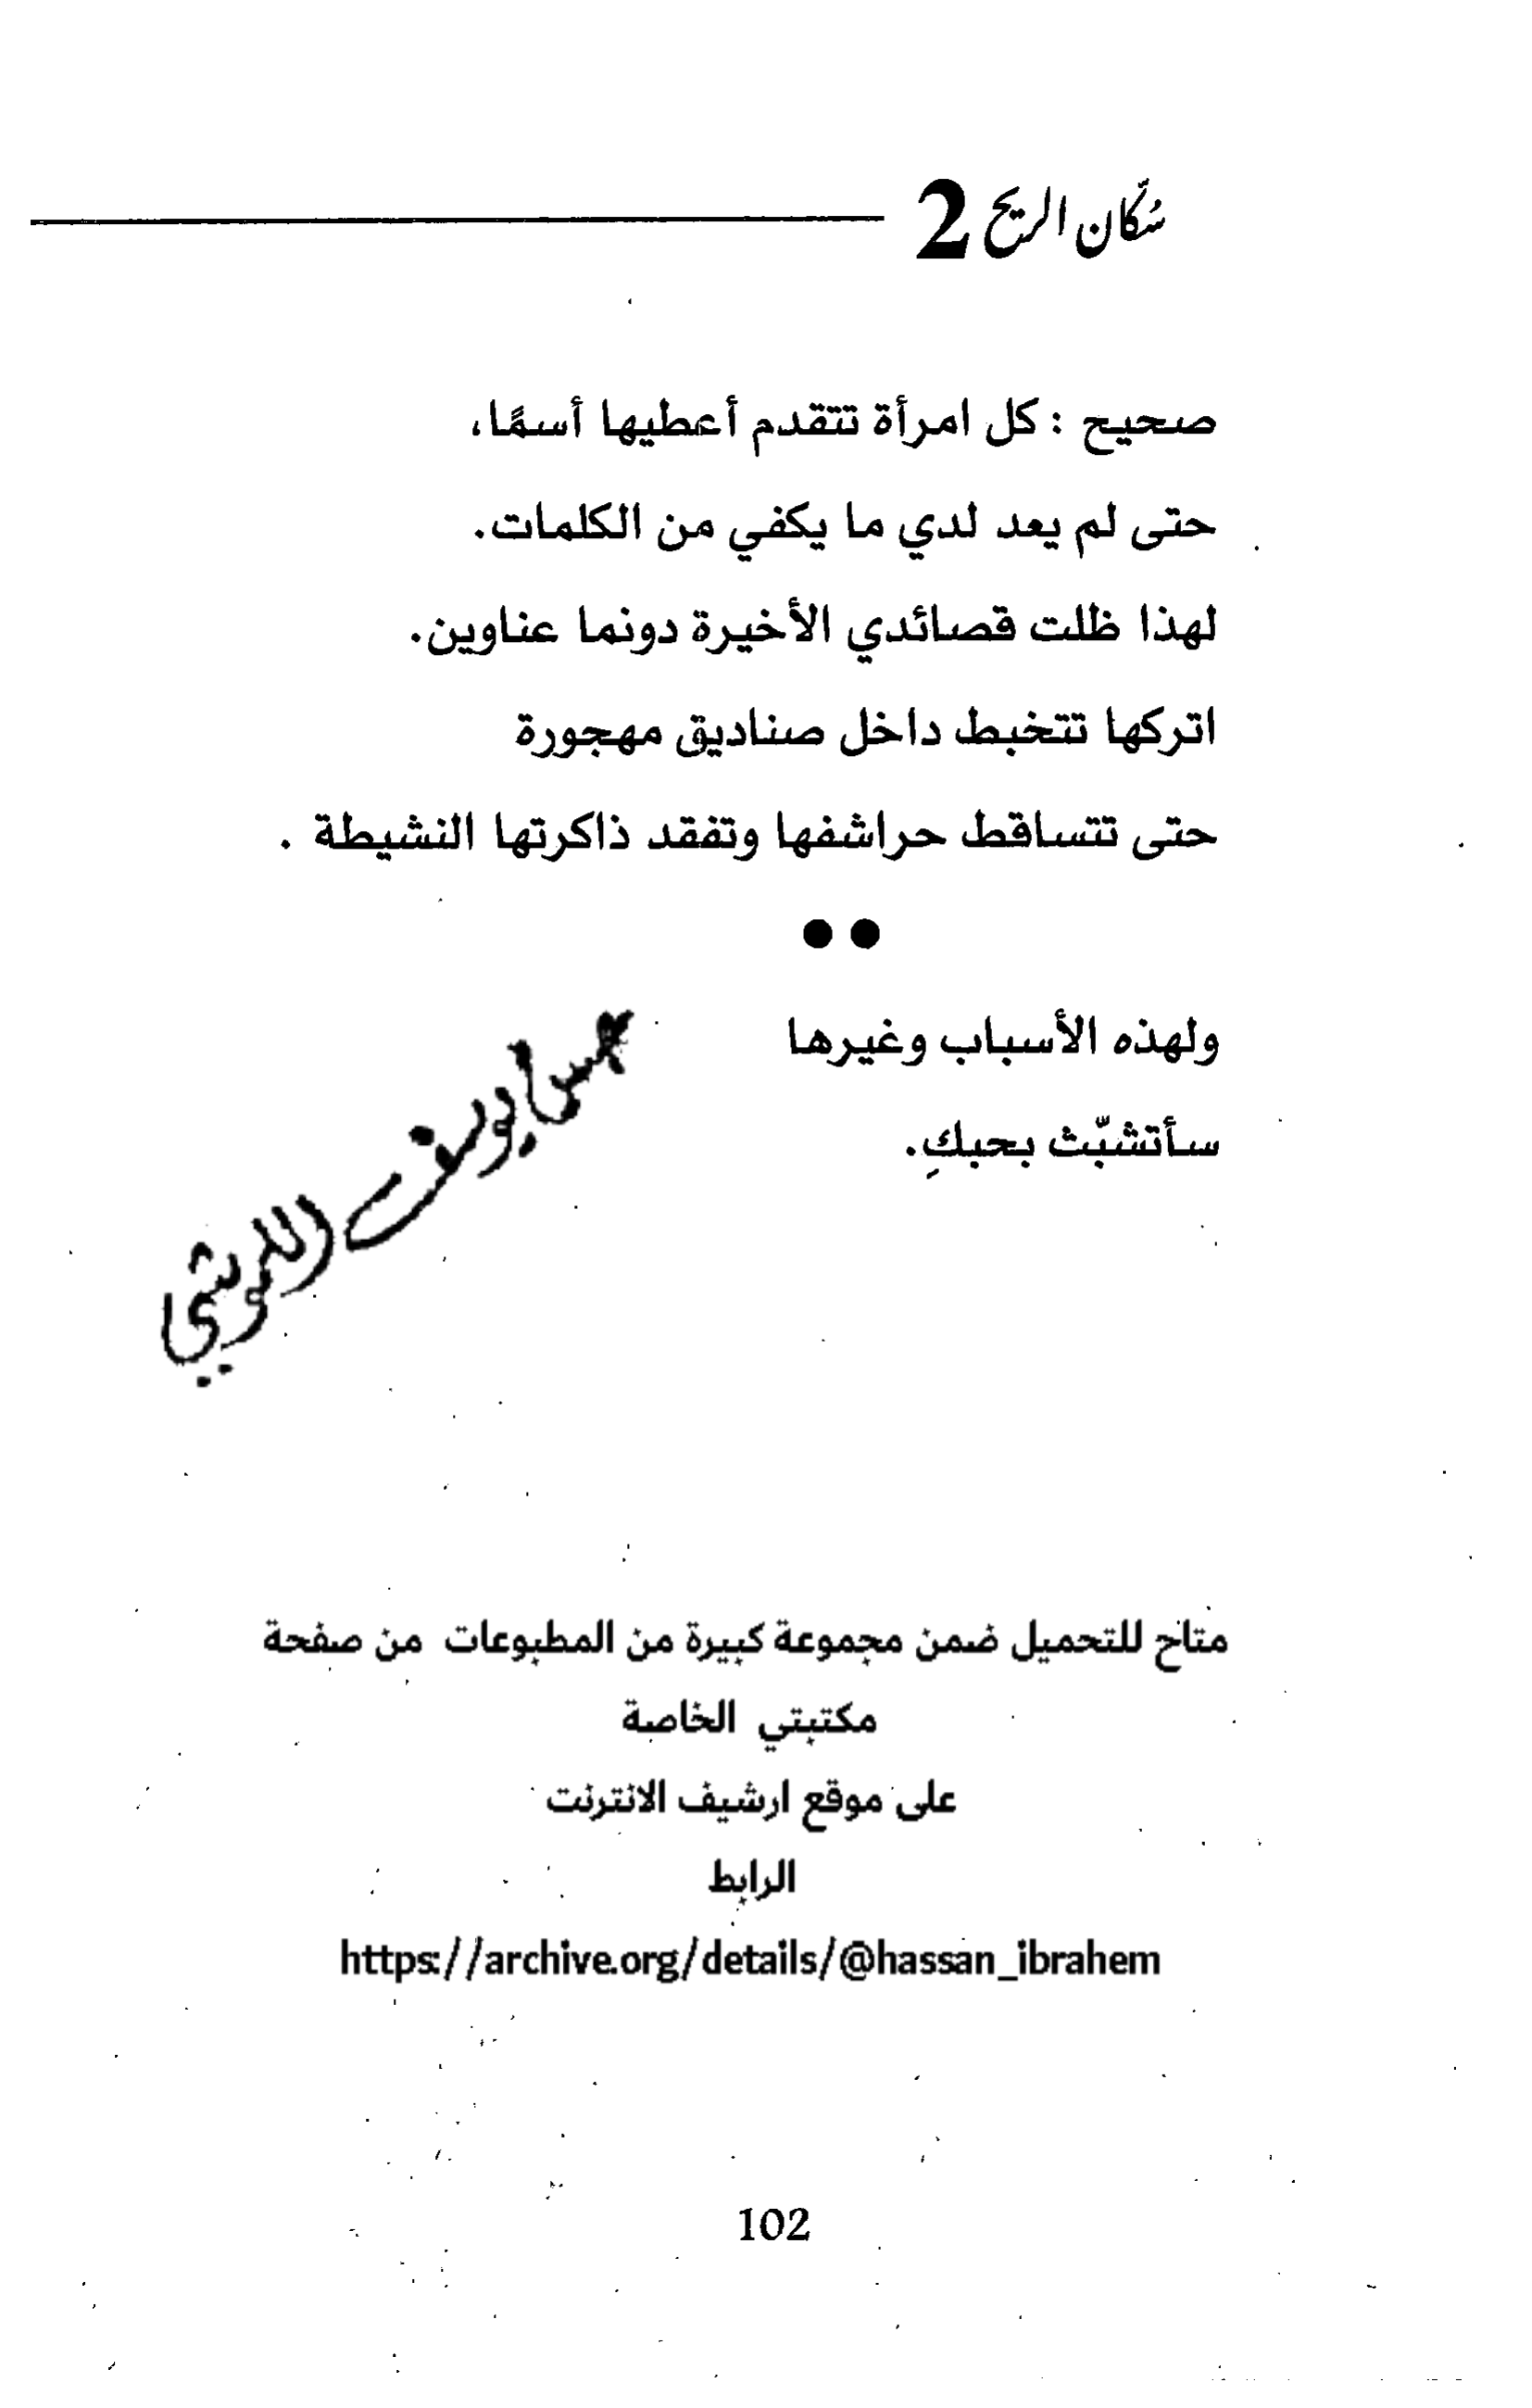 سُكّان الريح 2
صحيح : كل امرأة تتقدم أعطيها أسمًا،
حتى لم يعد لدي ما يكفي من الكلمات.
لهذا ظلت قصائدي الأخيرة دونما عناوين.
اتركها تتخبط داخل صناديق مهجورة
حتى تتساقط حراشفها وتفقد ذاكرتها النشيطة .
●●
ولهذه الأسباب وغيرها
سأتشبّث بحبكِ.
متاح للتحميل ضمن مجموعة كبيرة من المطبوعات من صفحة
مكتبتي الخاصة
على موقع ارشيف الانترنت
الرابط
https://archive.org/details/@hassan_ibrahem
102